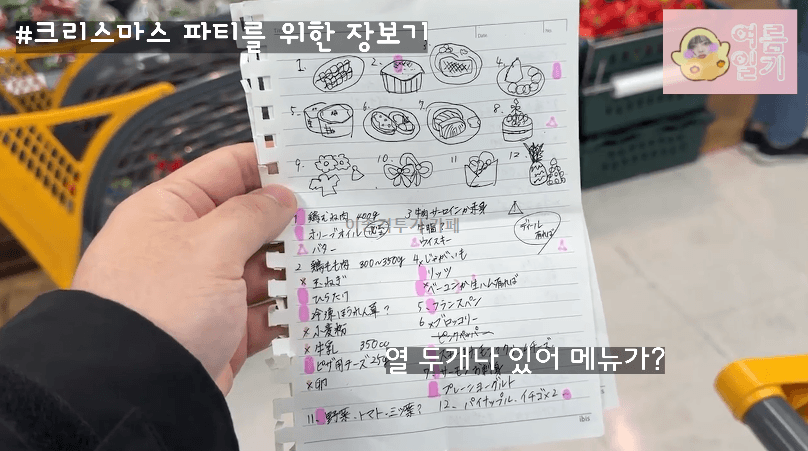 #크리스마스 파티를 위한 장보기
여름
일기
Date
No.
1.
2.
3.
4.
5.
6.
7.
8.
9.
10.
11
12.
1 鶏むね肉 400g
オリーブオイル
バター
2 鶏もも肉 300~350g
× 玉ねぎ
ひらたけ
冷凍ほうれん草?
× 小麦粉
× 牛乳 350cc
ピザ用チーズ 25g
× 卵
11. 野菜、トマト、三ツ葉?
3 牛肉サーロインか赤身
牛脂?
ウイスキー
ディール
あれば
4 ×じゃがいも
リッツ
×ベーコンか生ハムあれば
5、フランスパン
6 ×ブロッコリー
ピンクペッパー
プレーンヨーグルト
12、パイナップル、イチゴ×2
열 두개나 있어 메뉴가?
ibis